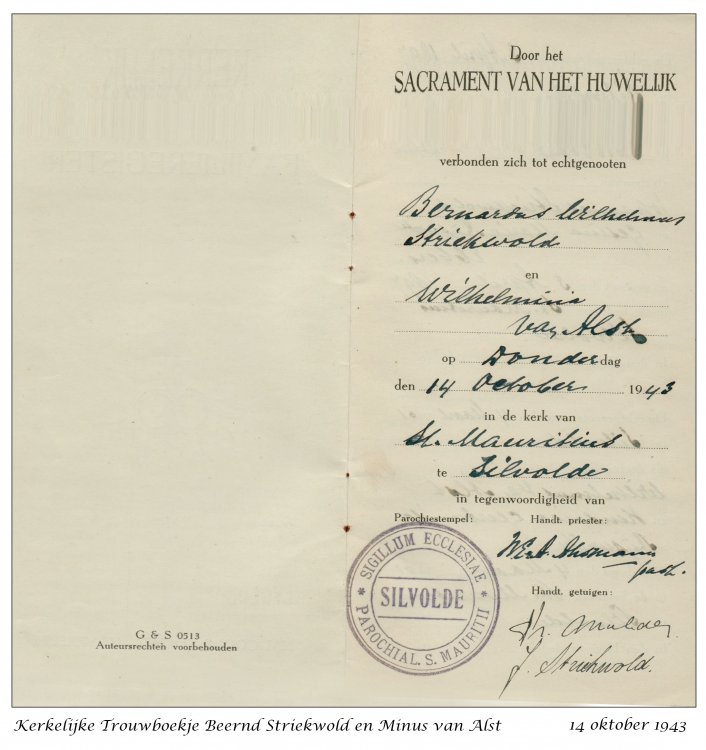 Door het
SACRAMENT VAN HET HUWELIJK
verbonden zich tot echtgenooten
Bernardus Wilhelmus
Striekwold
en
Wilhelmina
van Alst
op Donderdag
den 14 October 1943
in de kerk van
St. Mauritius
te Silvolde
in tegenwoordigheid van
Parochiestempel: Handt. priester:
past.
Handt. getuigen:
Mulder
J. Striekwold.
* SIGILLUM ECCLESIAE *
SILVOLDE
PAROCHIAL. S. MAURITII
G & S 0513
Auteursrechten voorbehouden
Kerkelijke Trouwboekje Beernd Striekwold en Minus van Alst 14 oktober 1943